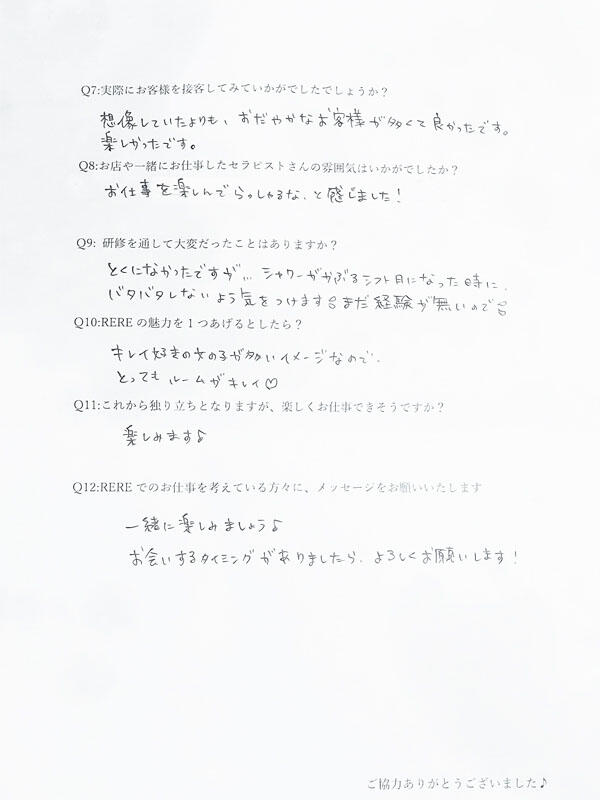 Q7:実際にお客様を接客してみていかがでしたでしょうか？
想像していたよりも、おだやかなお客様が多くて良かったです。
楽しかったです。
Q8:お店や一緒にお仕事したセラピストさんの雰囲気はいかがでしたか？
お仕事を楽しんでらっしゃるな、と感じました！
Q9: 研修を通して大変だったことはありますか？
とくになかったですが… シャワーがかぶるシフト目になった時に、
バタバタしないよう気をつけます まだ経験が無いので
Q10:RERE の魅力を１つあげるとしたら？
キレイ好きの女の子が多いイメージなので、
とっても ルームがキレイ♡
Q11:これから独り立ちとなりますが、楽しくお仕事できそうですか？
楽しみます♪
Q12:RERE でのお仕事を考えている方々に、メッセージをお願いいたします
一緒に楽しみましょう♪
お会いするタイミングがありましたら、よろしくお願いします！
ご協力ありがとうございました♪